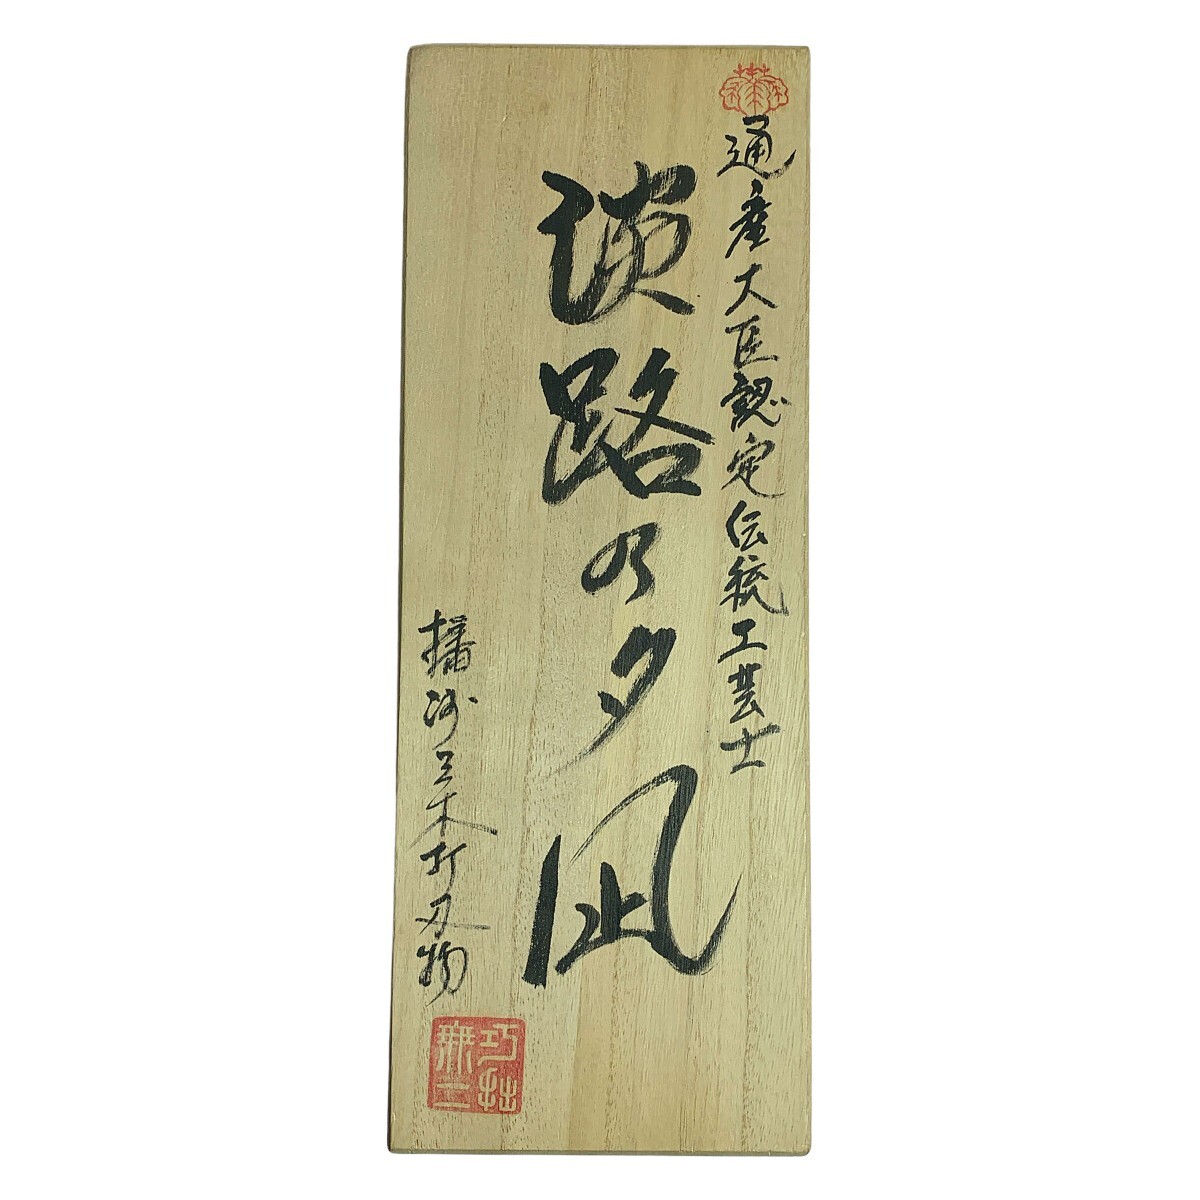 通産大臣認定伝統工芸士
淡路乃夕凪
播州三木打刃物
巧拙無二